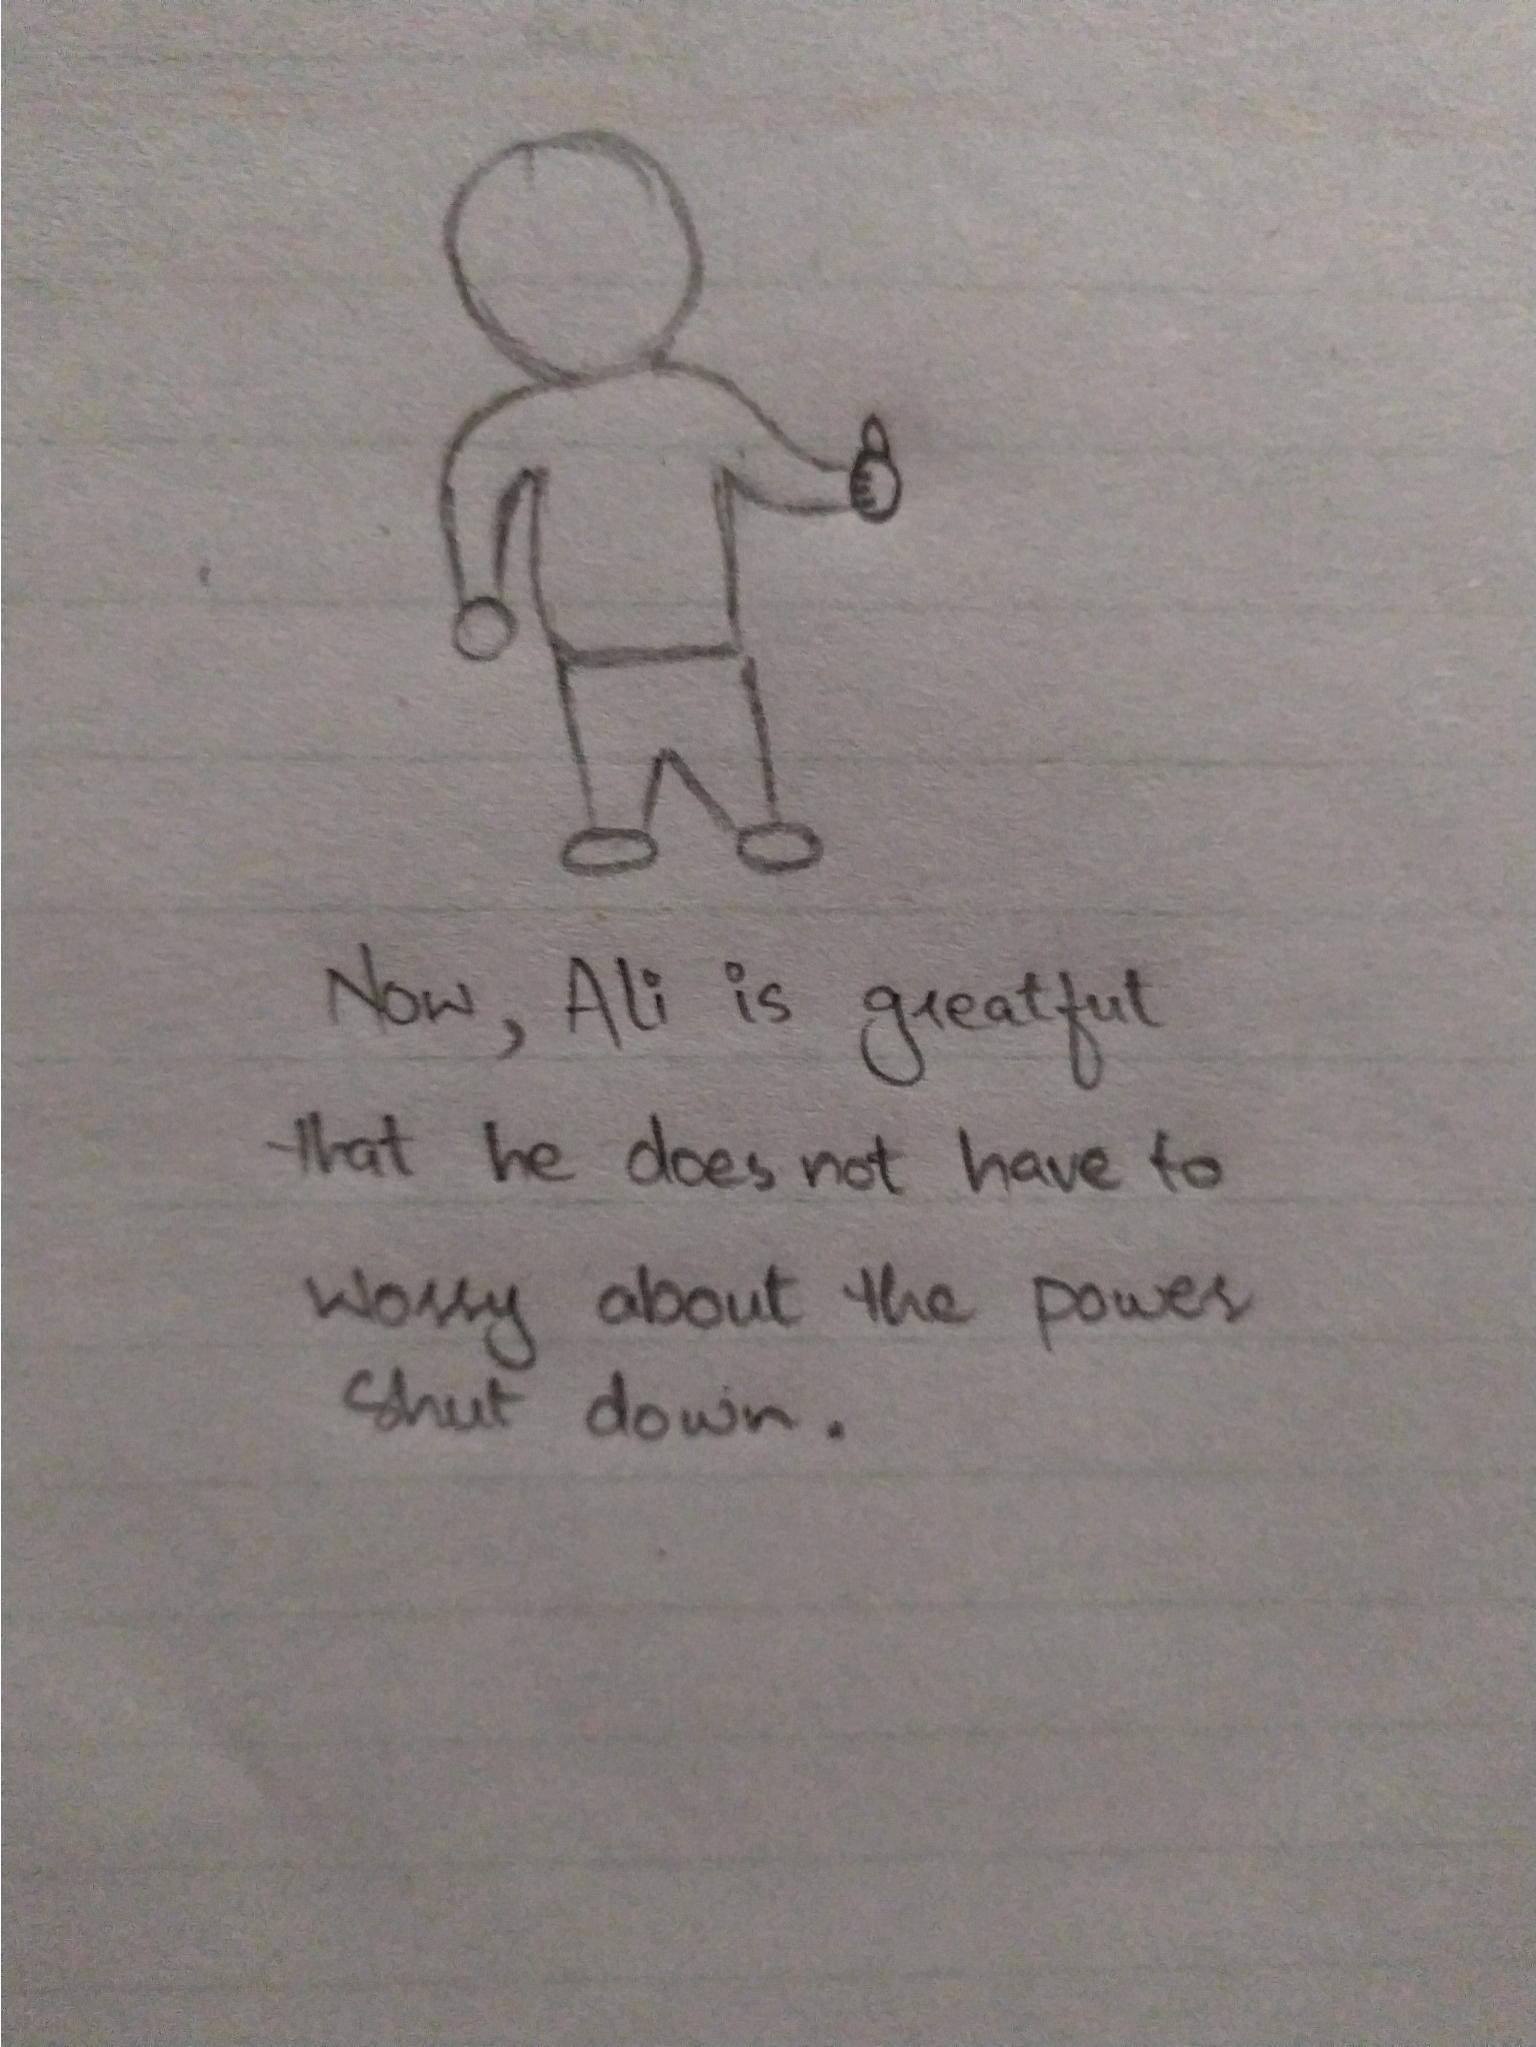 Now, Ali is greatful
that he does not have to
worry about the power
shut down.